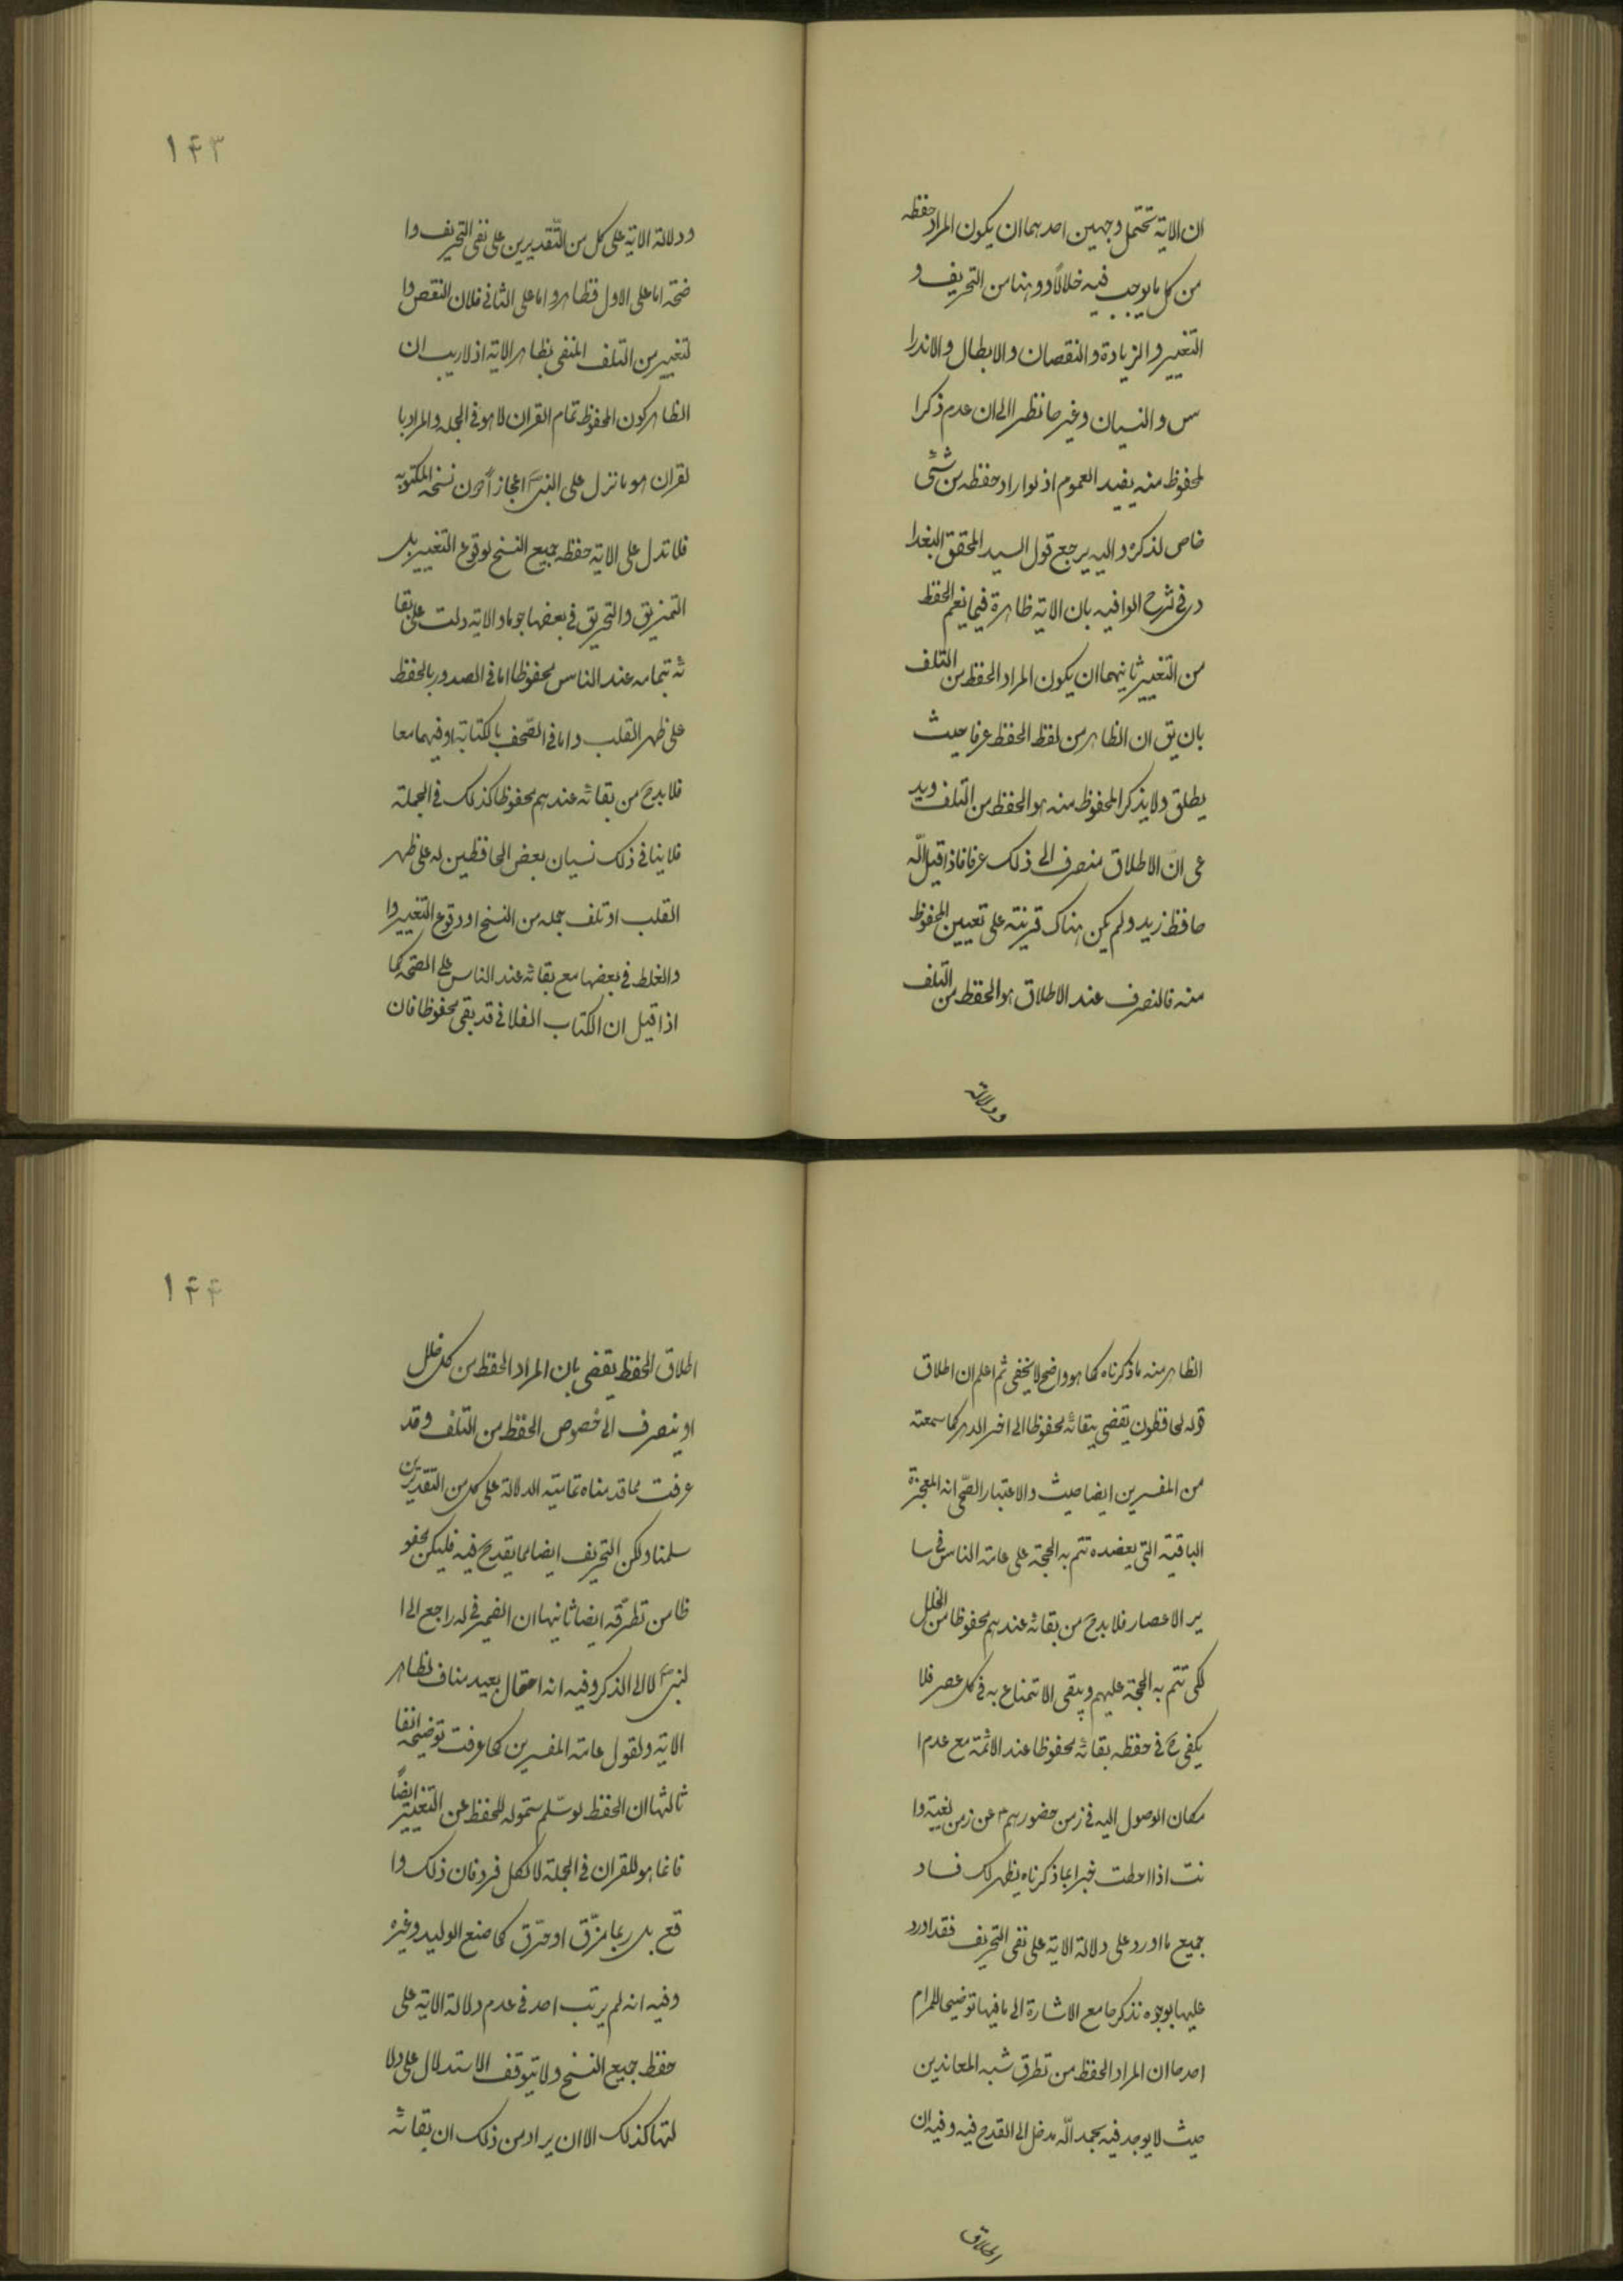 ان الاية تحتمل وجهين احدهما ان يكون المراد حفظه
من كل ما يوجب فيه خلالاً ووهنا من التحريف و
التغيير والزيادة والنقصان والابطال والاندرا
س والنسيان وغيرها نظرا الى ان عدم ذكر ا
لمحفوظ منه يفيد العموم اذ لو اراد حفظه من شئى
خاص لذكره واليه يرجع قول السيد المحقق البغدا
دى فى شرح الوافيه بان الاية ظاهرة فيما نعم الحفظ
من التغيير ثانيهما ان يكون المراد الحفظ من التلف
بان يق ان الظاهر من لفظ الحفظ عرفا حيث
يطلق ولا يذكر المحفوظ منه هو الحفظ من التلف ويد
عى ان الاطلاق منصرف الى ذلك عرفا فاذا قيل الله
حافظ زيد ولم يكن هناك قرينة على تعيين المحفوظ
منه فالنصرف عند الاطلاق هو الحفظ من التلف
ودلالة
١٤٣
ودلالة الاية على كل من التّقديرين على نفى التحريف وا
ضحة اما على الاول فظاهر واما على الثانى فلان النقص وا
لتغيير من التلف المنفى بظاهر الاية اذ لا ريب ان
الظاهر كون المحفوظ تمام القران لا هو فى الجمله والمراد با
لقران هو ما نزل على النبى اعجازاً دون نسخه المكتوبه
فلا تدل على الاية حفظه جميع النسخ لوقوع التغيير بل
التمزيق والتحريق فى بعضها جوما والاية دلت على بقا
ئه بتمامه عند الناس محفوظا اما فى الصدور بالحفظ
على ظهر القلب واما فى الصّحف بالكتابة او فيهما معا
فلا بدح من بقائه عندهم محفوظا كذلك فى الجملة
فلا ينافى ذلك نسيان بعض الحافظين له على ظهر
القلب او تلف جمله من النسخ او وقوع التغيير وا
والغلط فى بعضها مع بقائه عند الناس على الصّحه كما
اذا قيل ان الكتاب الفلانى قد بقى محفوظا فان
الظاهر منه ما ذكرناه كما هو واضح لا يخفى ثم اعلم ان اطلاق
قوله لحافظون يقضى ببقائه محفوظا الى اخر الدهر كما سمعته
من المفسرين ايضا حيث والاعتبار الصّحى انه المعجزة
الباقية التى يعضده تتم به الحجة على عامة الناس فى سا
ير الاعصار فلا بدح من بقائه عندهم محفوظا من الخلل
لكى تتم به الحجة عليهم ويبقى الامتناع به فى كل عصر فلا
يكفى ح فى حفظه بقائه محفوظا عند الائمة مع عدم ا
مكان الوصول اليه فى زمن حضورهم عن زمن لغيبة وا
نت اذا احطت خبرا بما ذكرناه يظهر لك فساد
جميع ما اورد على دلالة الاية على نفى التحريف فقد اورد
عليها بوجوه نذكرها مع الاشارة الى ما فيها توضيحا للمرام
احدها ان المراد الحفظ من تطرق شبه المعاندين
حيث لا يوجد فيه بحمد الله مدخل الى القدح فيه وفيه ان
اطلاق
١٤٤
اطلاق الحفظ يقضى بان المراد الحفظ من كل خلل
او ينصرف الى خصوص الحفظ من التلف وقد
عرفت مما قدمناه تمامية الدلالة على كل من التقديرين
سلمنا ولكن التحريف ايضا مما يقدح فيه فليكن محفو
ظا من تطرّقه ايضا ثانيها ان الضمير فى له راجع الى ا
لنبى لا الى الذكر وفيه انه احتمال بعيد مناف لظاهر
الاية ولقول عامة المفسرين كما عرفت توضيحه انفا
ثالثها ان الحفظ لو سلّم شموله للحفظ عن التغيير ايضاً
فانما هو للقران فى الجملة لا لكل فرد فان ذلك وا
قع بل ربما مزّق او حرّق كما صنع الوليد وغيره
وفيه انه لم يرتب احد فى عدم دلالة الاية على
حفظ جميع النسخ ولا يتوقف الاستدلال على دلا
لتها كذلك الا ان يراد من ذلك ان بقائه